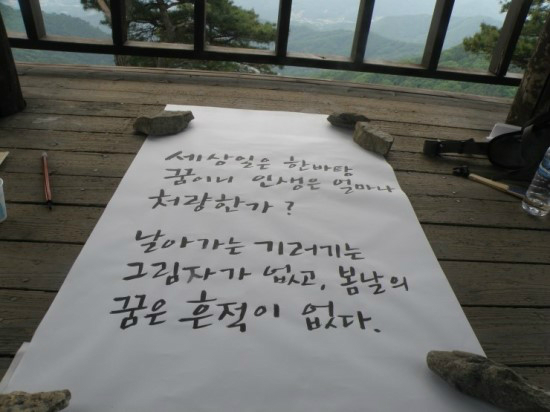 세상일은 한바탕
꿈이니 인생은 얼마나
처량한가?
날아가는 기러기는
그림자가 없고, 봄날의
꿈은 흔적이 없다.